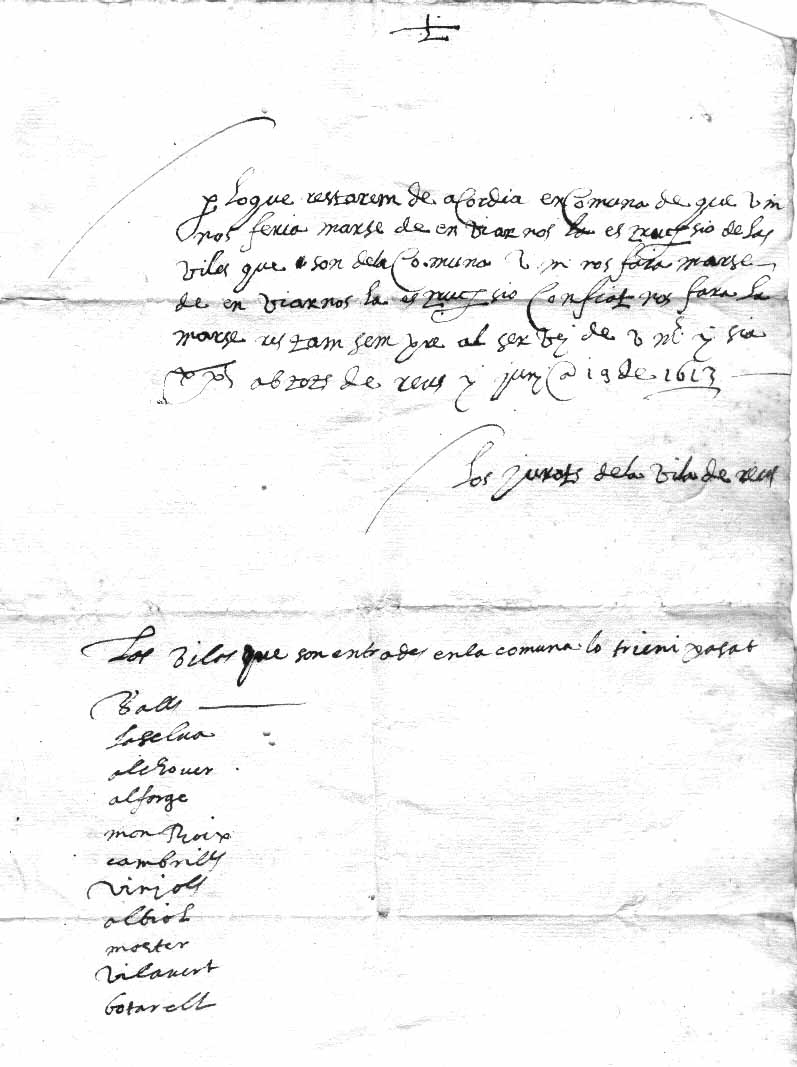 p loque restarem de acordia en Comuna de que v m
nos feria marse de en viarnos la es trucsio de las
viles que son dela Comuna v m nos fara marse
de en viarnos la es trucsio Confiat nos fara la
marse restam sempre al servey de v m y sia
ab tots de reus y juny a 19 de 1613
los jurats dela vila de reus
Las viles que son entrades en la comuna lo trieni pasat
Valls
laselva
alchover
alforge
mon Roix
cambrills
vinjols
albiol
moster
vilavert
botarell